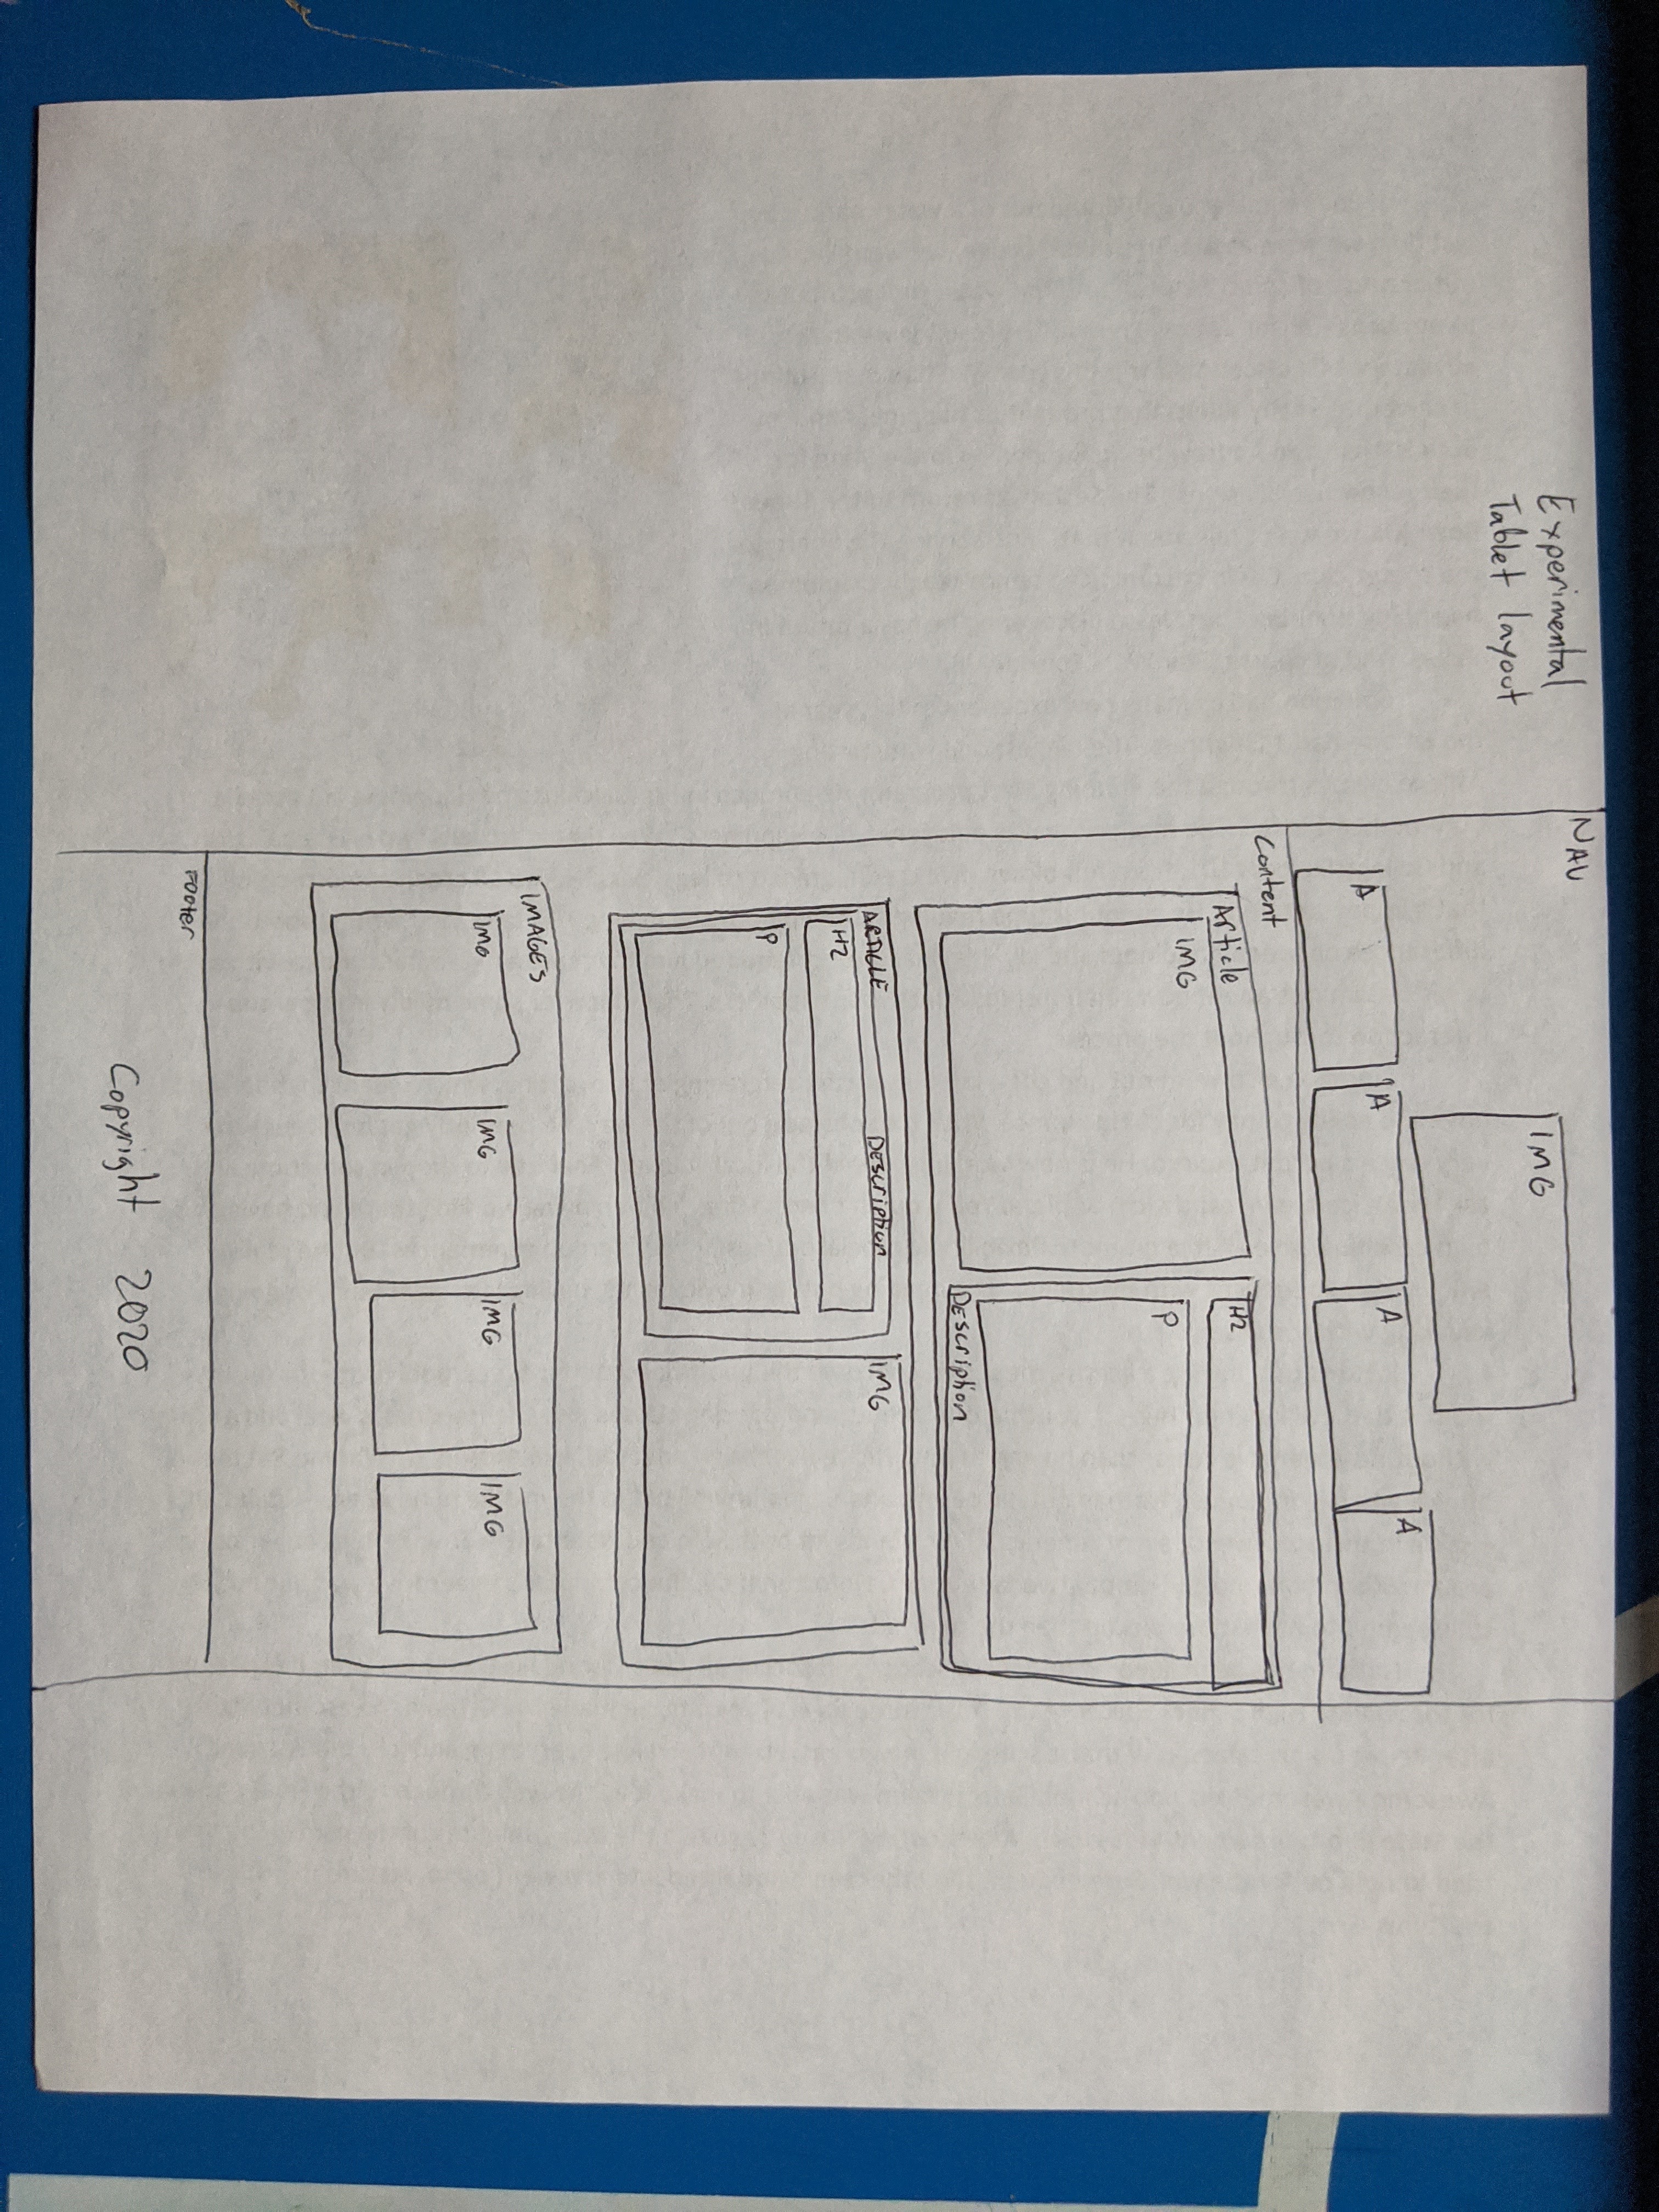 Experimental
Tablet layout
NAV
IMG
A
A
A
A
Content
Article
IMG
H2
P
DEscription
ARTICLE
DEscription
H2
P
IMG
IMAGES
IMG
IMG
IMG
IMG
Footer
Copyright 2020